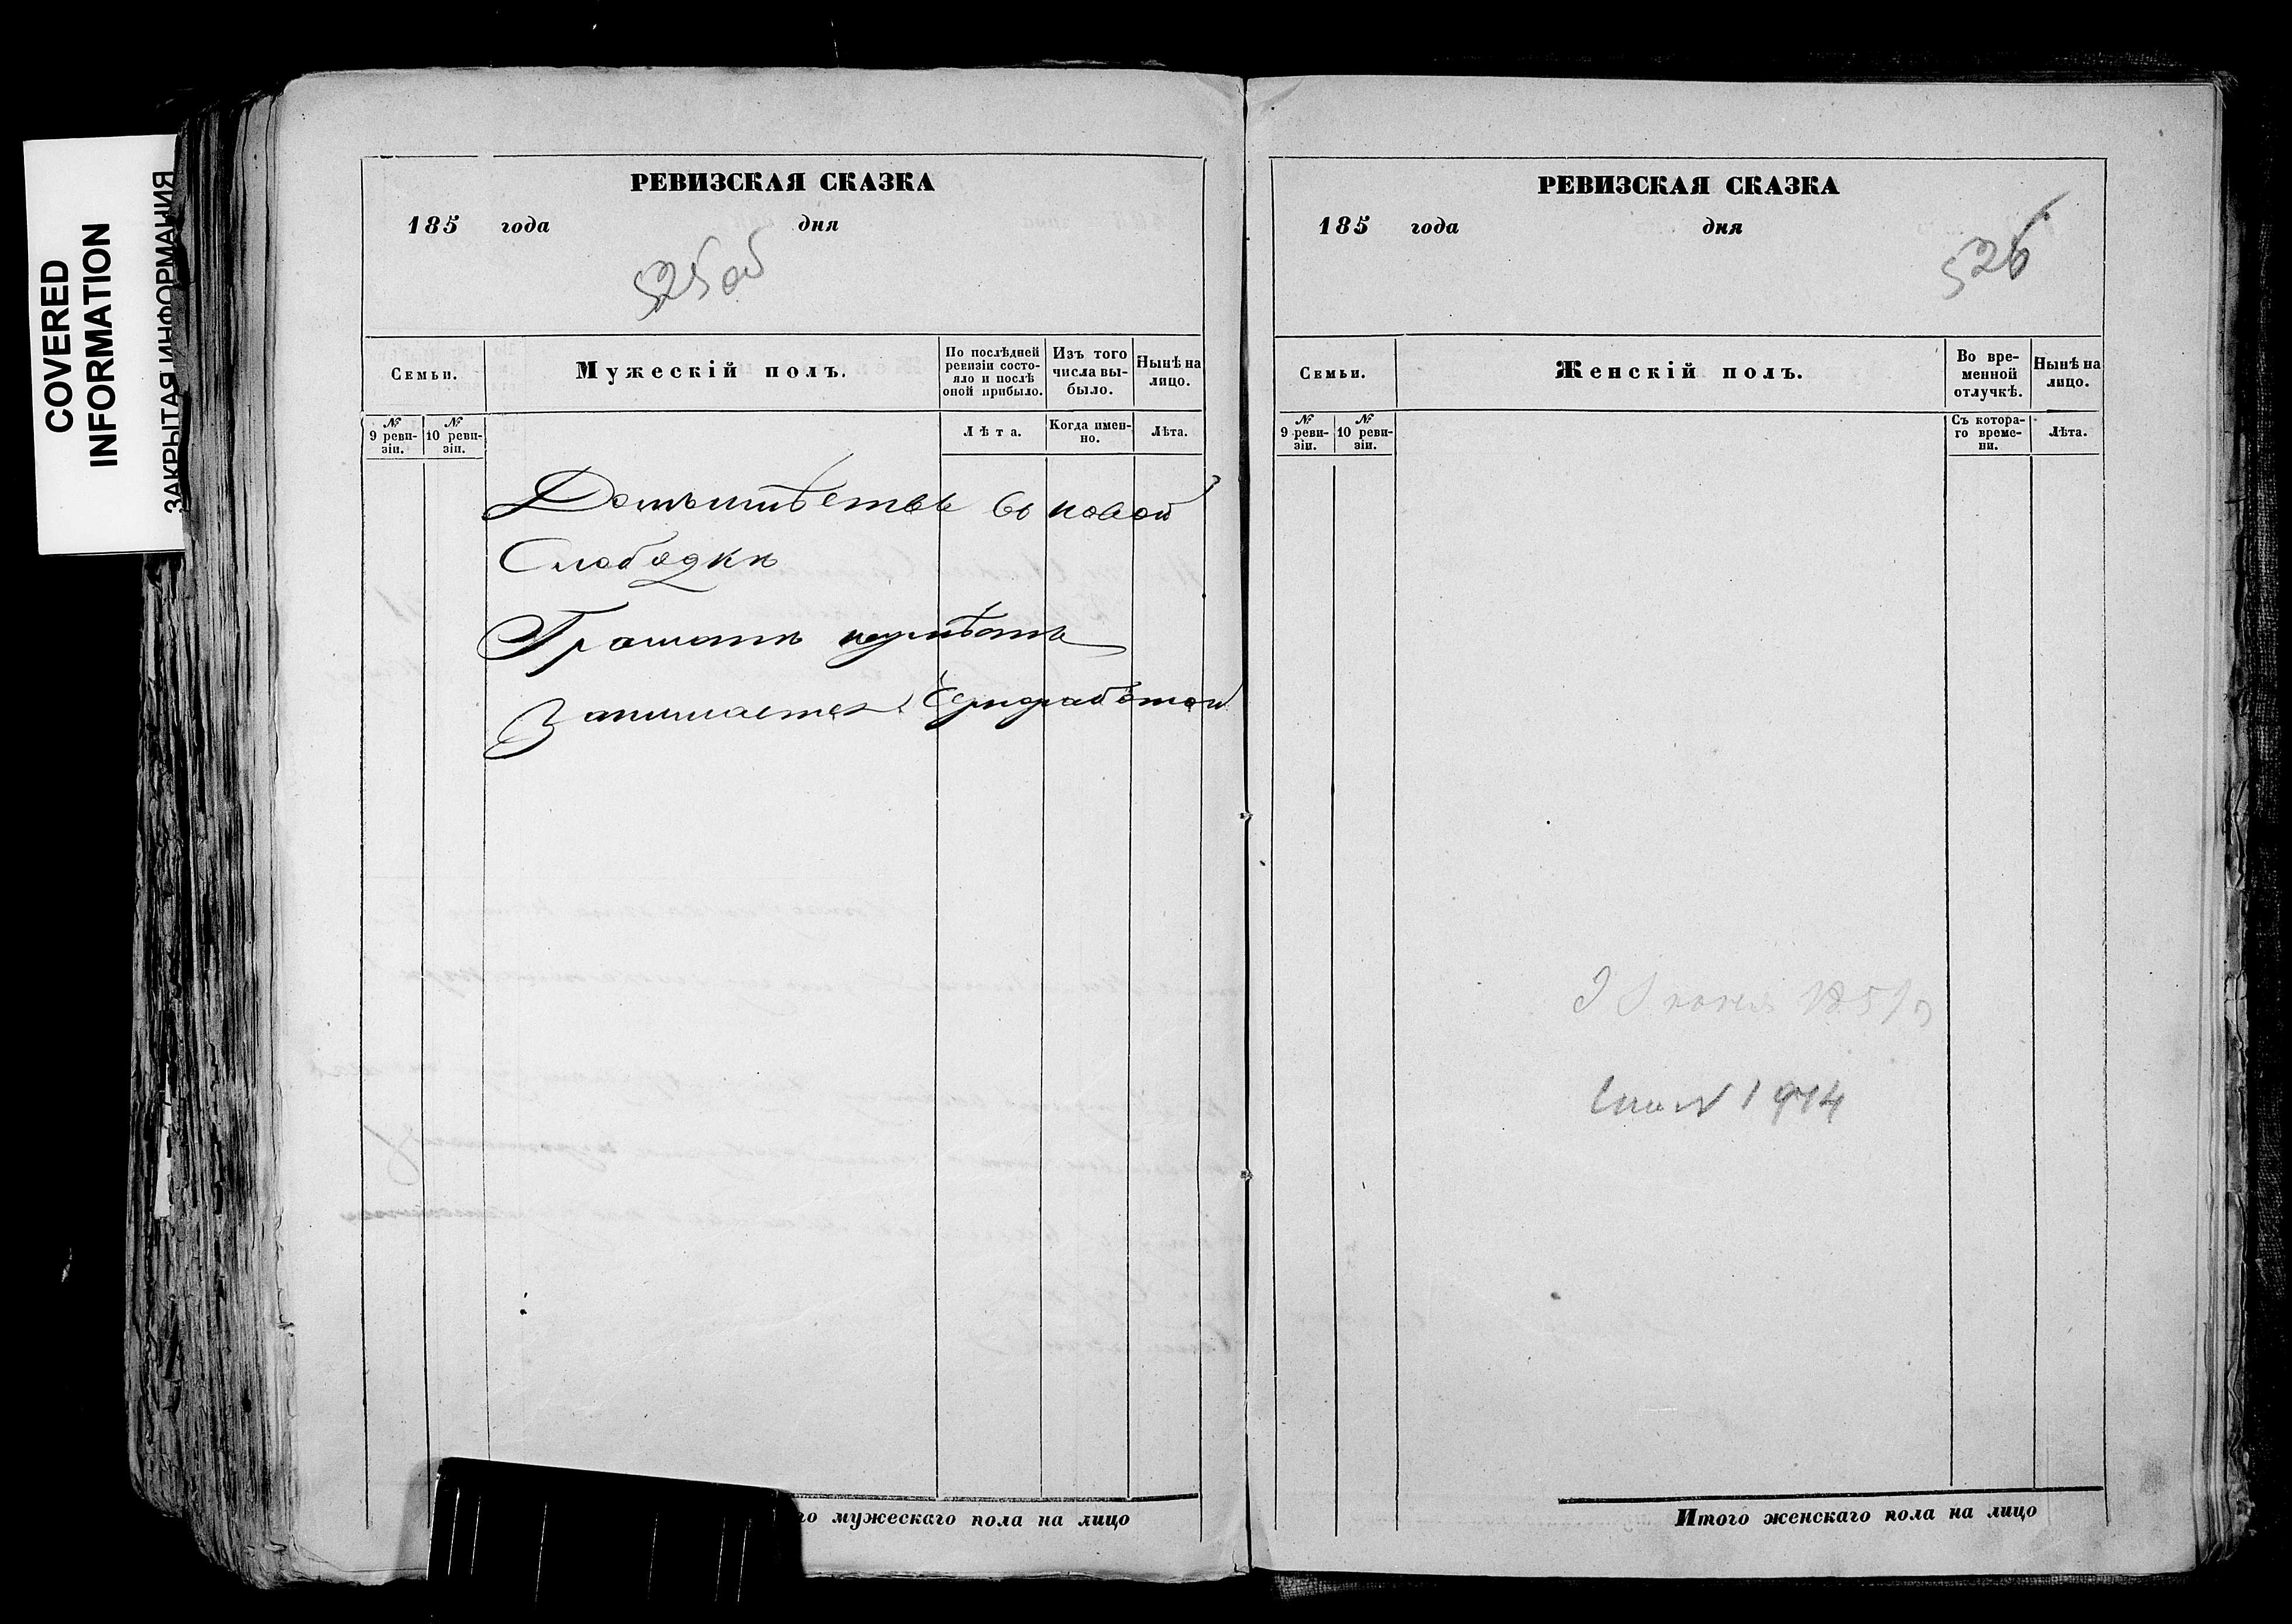 COVERED
INFORMATION
ЗАКРЫТАЯ ИНФОРМАЦИЯ
РЕВИЗСКАЯ СКАЗКА
185 года дня
525об
Семьи.
Мужескій полъ.
По послѣдней ревизіи состояло и послѣ оной прибыло.
Изъ того числа выбыло.
Нынѣ на лицо.
№ 9 ревизіи.
№ 10 ревизіи.
Лѣта.
Когда именно.
Лѣта.
Домъ имѣетъ въ новой
Слободкѣ
Грамотѣ неумѣетъ
Занимается Чернработой
го мужескаго пола на лицо
РЕВИЗСКАЯ СКАЗКА
185 года дня
526
Семьи.
Женскій полъ.
Во временной отлучкѣ.
Нынѣ на лицо.
№ 9 ревизіи.
№ 10 ревизіи.
Съ котораго времени.
Лѣта.
Итого женскаго пола на лицо